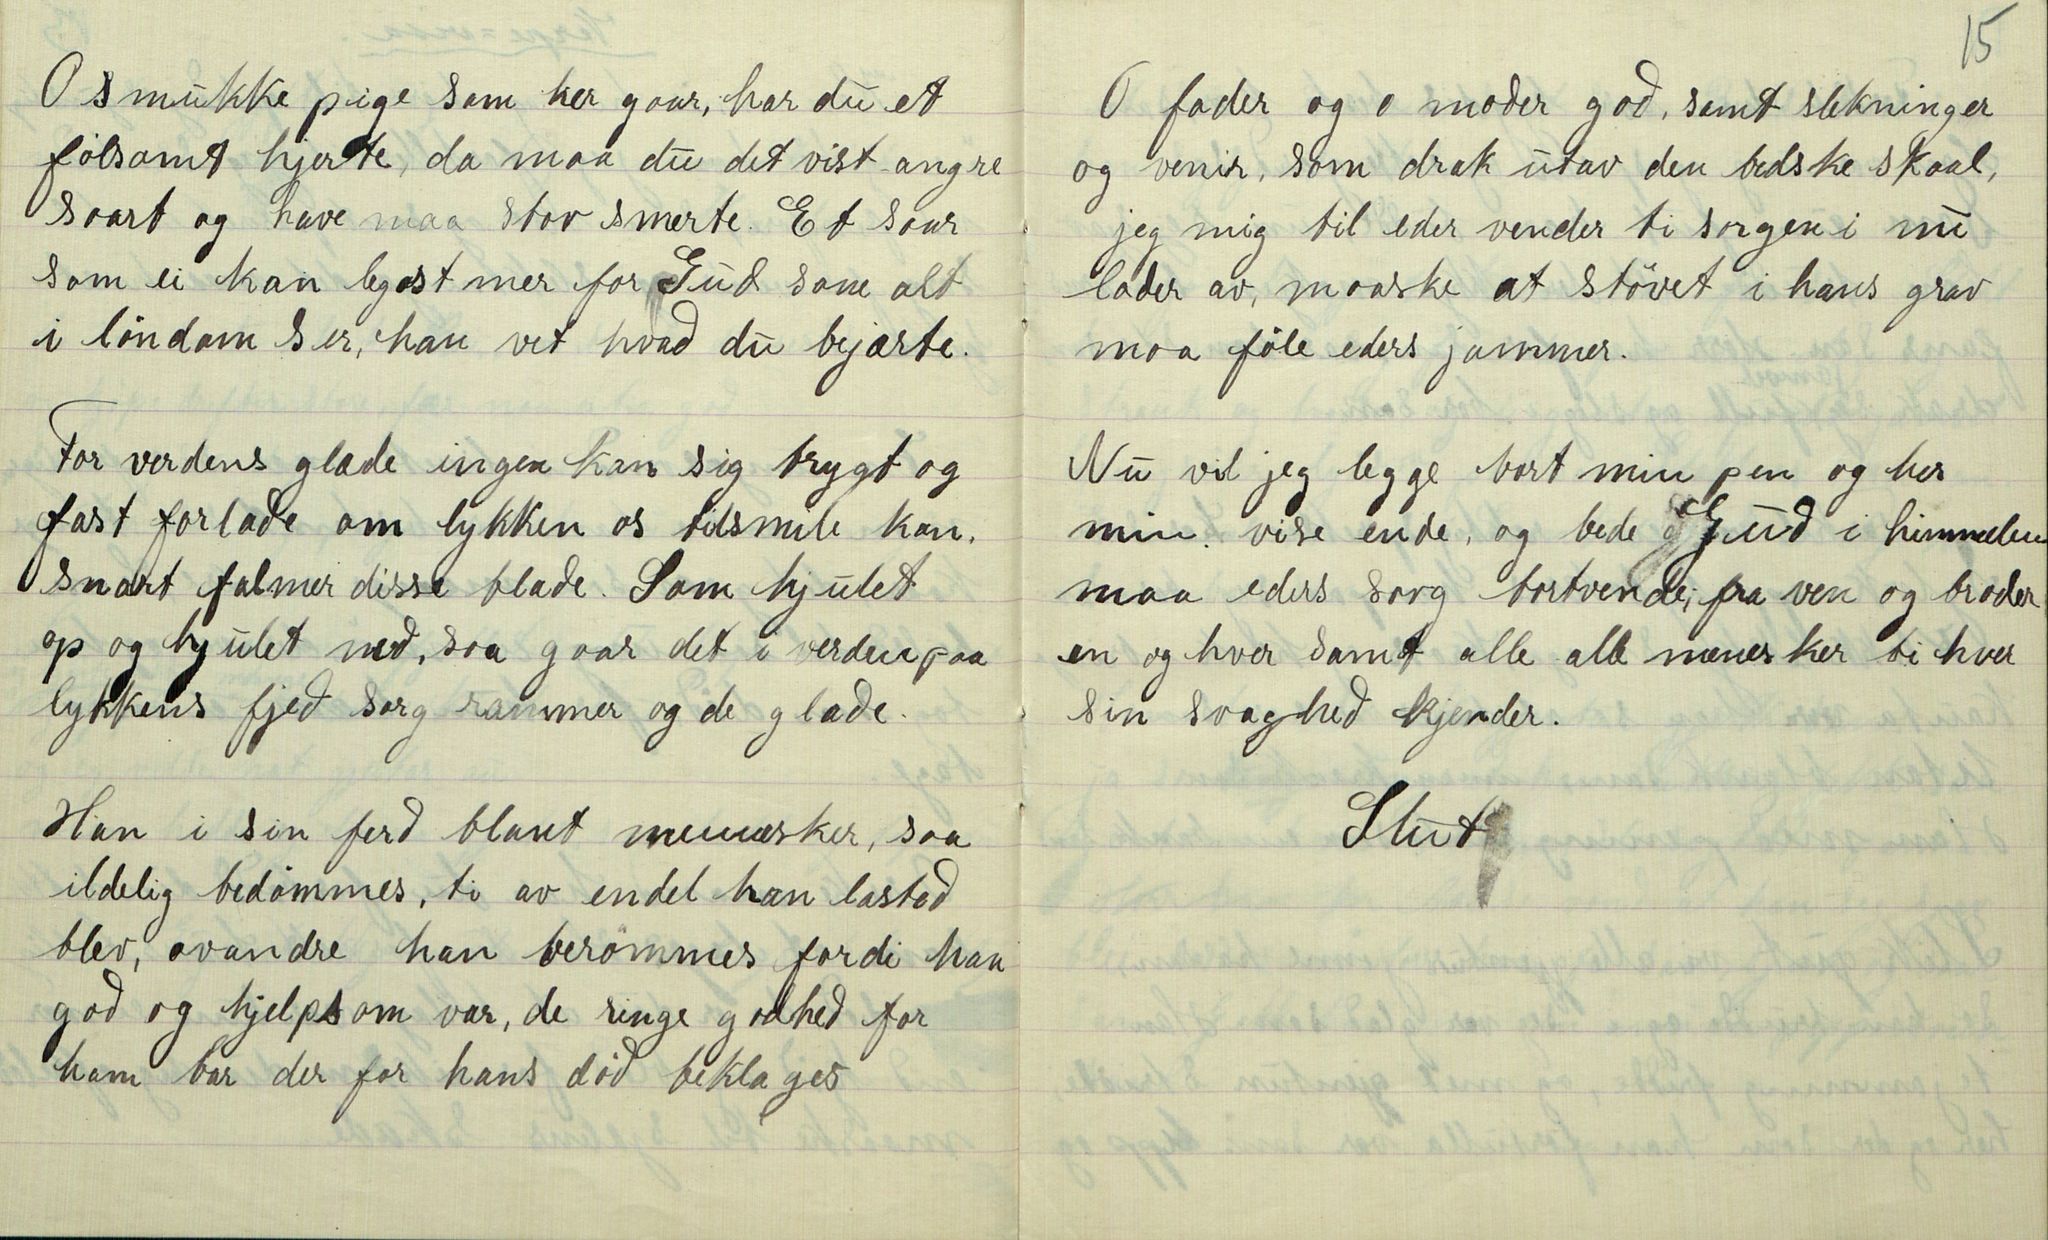 O smukke pige som her gaar, har du et
følsomt hjerte, da maa du det vist angre
svart og have maa stor smerte. Et saar
som ei kan legest mer for Gud som alt
i löndom ser, han vet hvad du bejærte.
For verdens glæde ingen kan sig trygt og
fast forlade om lykken os tilsmile kan,
snart falmer disse blade. Som hjulet
op og hjulet ned, saa gaar det i verden paa
lykkens fjed sorg rammer og de glade.
Han i sin ferd blant mennesker, saa
ildelig bedömmes, ti av endel han lasted
blev, avandre han berömmes fordi han
god og hjelpsom var, de ringe godhed for
ham bar der for hans död beklages
15
O fader og o moder god, samt slekninger
og venir, som drak utav den bedske skaal,
jeg mig til eder vender ti sorgen i nu
lader av, maaske at stövet i hans grav
maa föle eders jammer.
Nu vil jeg legge bort min pen og her
min vise ende, og bede Gud i himmelen
maa eders sorg bortvende, fra ven og broder
en og hver samt alle alle menesker ti hver
sin svaghed kjender.
Slut